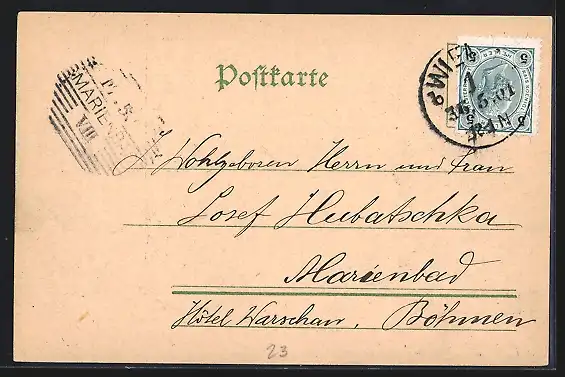 Postkarte
WIEN
1
31.5.01
5
5
MARIENB
VIII
Wohlgeboren Herrn und Frau
Josef Hubatschka
Marienbad
Hôtel Warschau, Böhmen
23